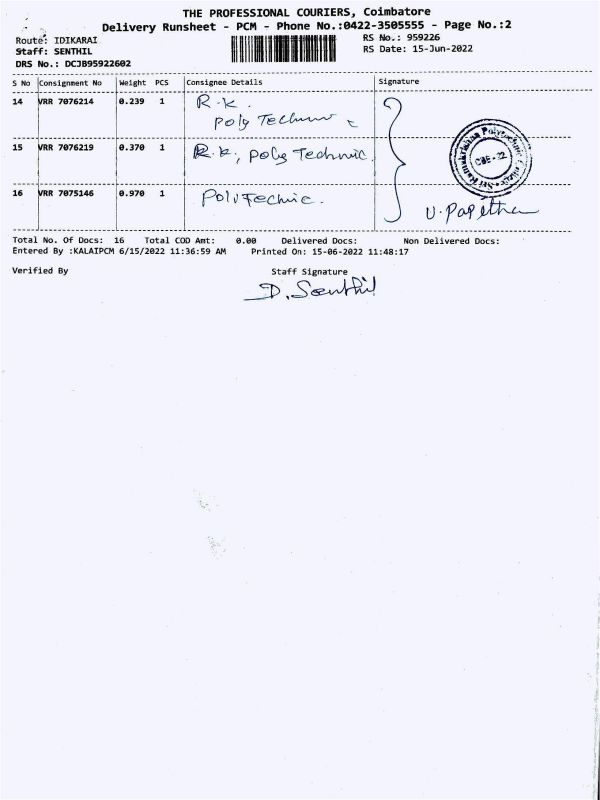 THE PROFESSIONAL COURIERS, Coimbatore
Delivery Runsheet - PCM - Phone No.:0422-3505555 - Page No.:2
Route: IDIKARAI
RS No.: 959226
Staff: SENTHIL
RS Date: 15-Jun-2022
DRS No.: DCJB95922602
S No Consignment No Weight PCS Consignee Details Signature
14 VRR 7076214 0.239 1 R.K.
Poly
15 VRR 7076219 0.370 1 R.K, Poly Technic.
16 VRR 7075146 0.970 1 PolyTechnic.
Total No. Of Docs: 16 Total COD Amt: 0.00 Delivered Docs: Non Delivered Docs:
Entered By :KALAIPCM 6/15/2022 11:36:59 AM Printed On: 15-06-2022 11:48:17
Verified By Staff Signature
D. Senthil